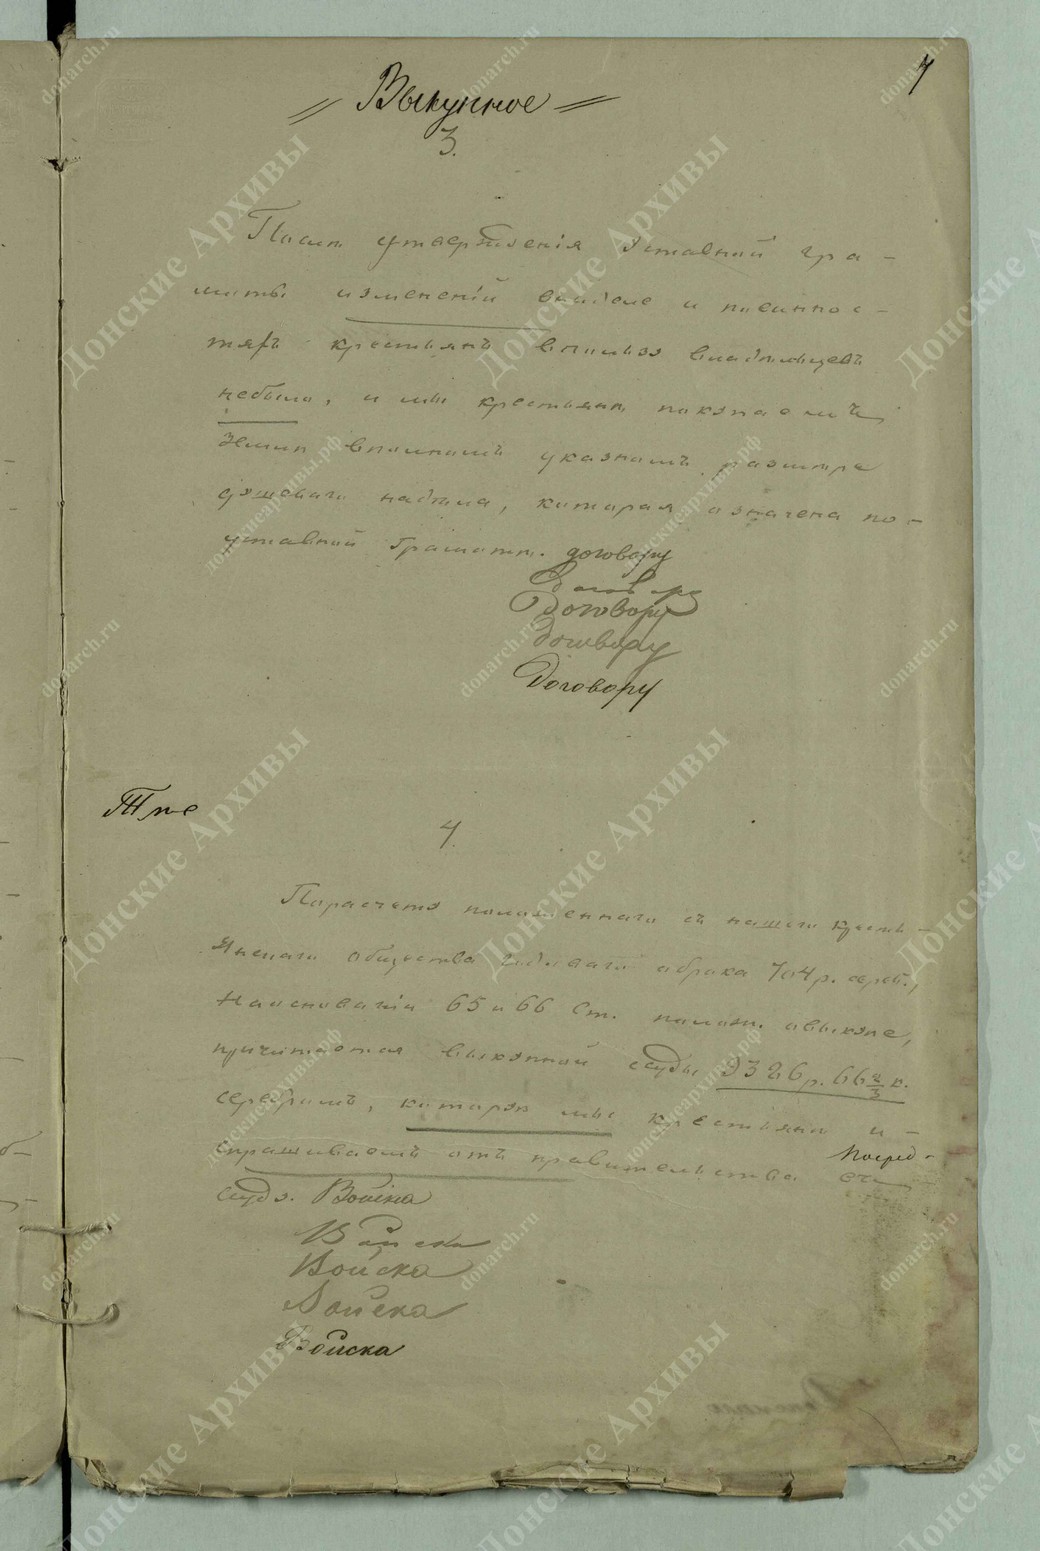 7
Выкупное
3.
После утвержденія Уставной гра-
моты измененій внаделе и повиннос-
тяхъ крестьянъ впользу владельцевъ
небыло, и мы крестьяне покупаемъ
Земли вполномъ указномъ размере
душеваго надела, которая означена по-
уставной грамоте. договору
Договору
Договору
Договору
Договору
4.
Порасчету положеннаго съ нашего кресть-
янскаго общества годоваго оброка 704 р. сереб.,
Наоснованіи 65 и 66 Ст. полож. овыкупе,
причитается выкупной ссуды 9386 р. 66 2/3 к.
серебромъ, которую мы крестьяне и-
спрашиваемъ отъ правительства
Посред-
ссуду. Войска
Войска
Войска
Войска
Войска
donarch.ru
Донские Архивы
донскиеархивы.рф